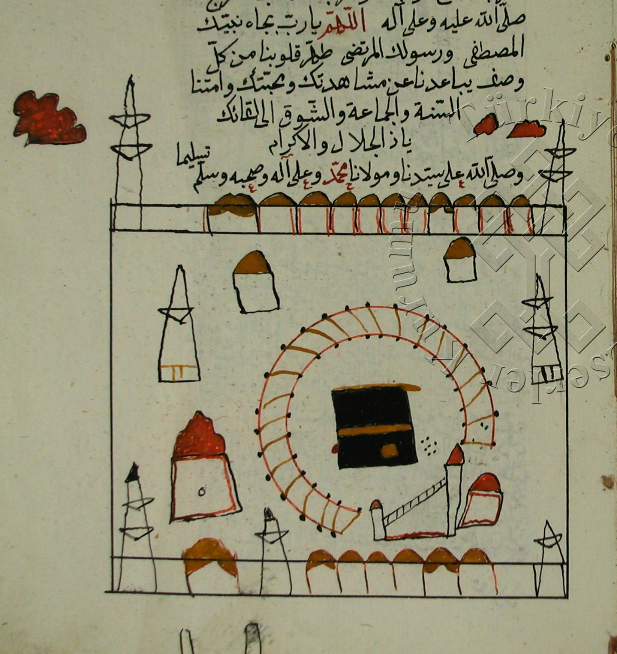 صلى الله عليه وعلى آله اللهم يا رب بجاه نبيك
المصطفى ورسولك المرتضى طهر قلوبنا من كل
وصف يباعدنا عن مشاهدتك ومحبتك وامتنا
السنة والجماعة والشوق الى لقائك
يا ذا الجلال والاكرام
وصلى الله على سيدنا ومولانا محمد وعلى آله وصحبه وسلم
تسليما
Türkiye